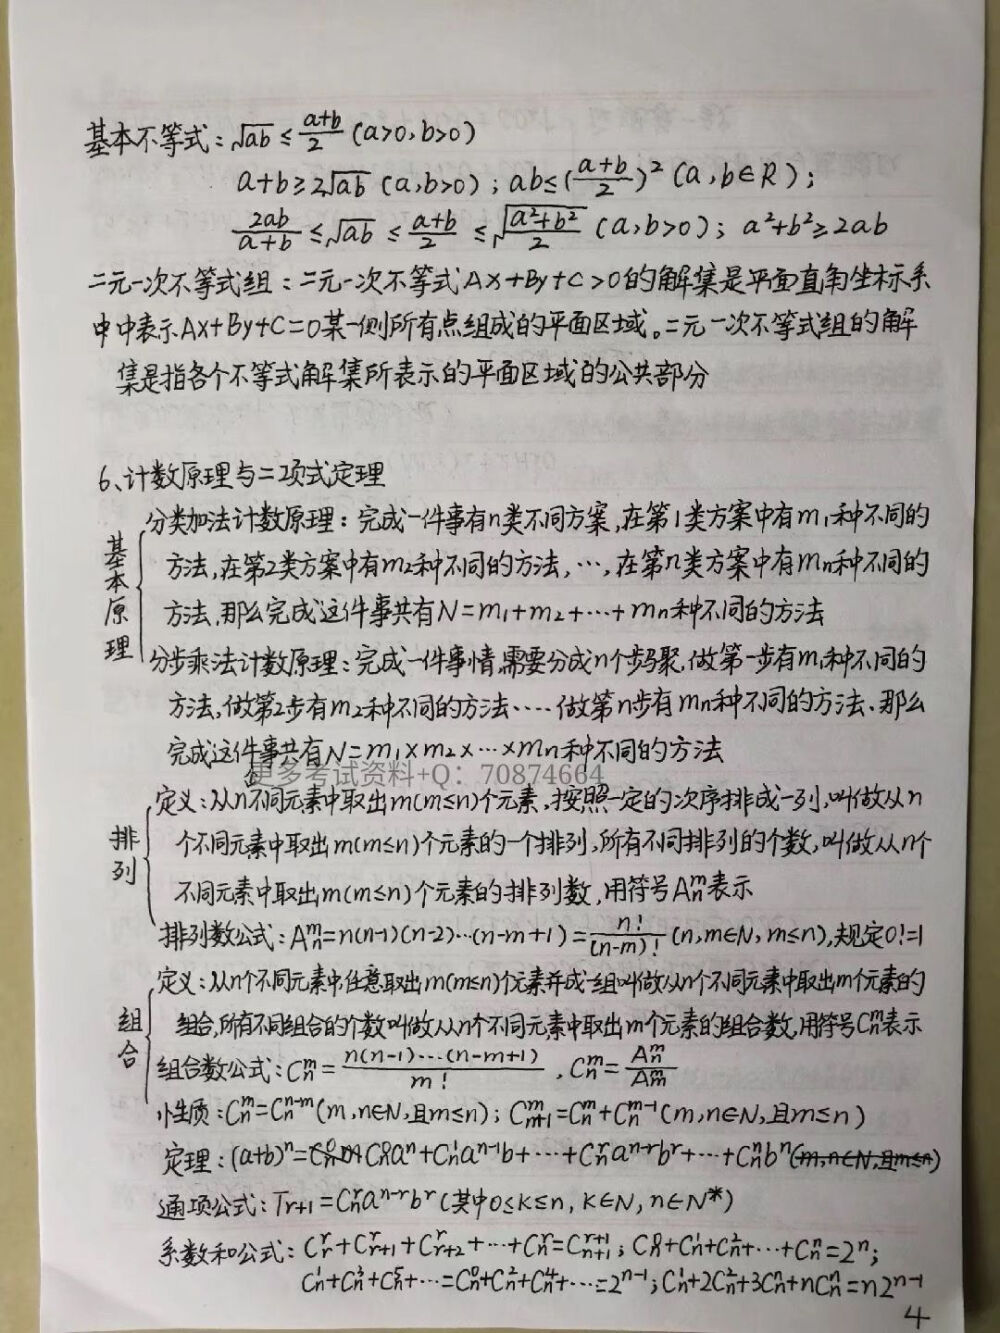 基本不等式：√ab ≤ (a+b)/2 (a>0,b>0)
a+b≥2√ab (a,b>0)；ab≤((a+b)/2)² (a,b∈R)；
2ab/(a+b) ≤ √ab ≤ (a+b)/2 ≤ √((a²+b²)/2) (a,b>0)；a²+b²≥2ab
二元一次不等式组：二元一次不等式Ax+By+C>0的解集是平面直角坐标系
中中表示Ax+By+C=0某一侧所有点组成的平面区域。二元一次不等式组的解
集是指各个不等式解集所表示的平面区域的公共部分
6、计数原理与二项式定理
基本原理
分类加法计数原理：完成一件事有n类不同方案，在第1类方案中有m₁种不同的
方法，在第2类方案中有m₂种不同的方法，…，在第n类方案中有mn种不同的
方法，那么完成这件事共有N=m₁+m₂+…+mn种不同的方法
分步乘法计数原理：完成一件事情，需要分成n个步骤，做第一步有m₁种不同的
方法，做第2步有m₂种不同的方法…．做第n步有mn种不同的方法．那么
完成这件事共有N=m₁×m₂×…×mn种不同的方法
更多考试资料+Q：70874664
排列
定义：从n个不同元素中取出m(m≤n)个元素，按照一定的次序排成一列，叫做从n
个不同元素中取出m(m≤n)个元素的一个排列，所有不同排列的个数，叫做从n个
不同元素中取出m(m≤n)个元素的排列数，用符号Aₙᵐ表示
排列数公式：Aₙᵐ=n(n-1)(n-2)…(n-m+1)=n!/(n-m)! (n,m∈N,m≤n)，规定0!=1
组合
定义：从n个不同元素中，任意取出m(m≤n)个元素并成一组叫做从n个不同元素中取出m个元素的
组合，所有不同组合的个数叫做从n个不同元素中取出m个元素的组合数，用符号Cₙᵐ表示
组合数公式：Cₙᵐ=n(n-1)…(n-m+1)/m!，Cₙᵐ=Aₙᵐ/Aₘᵐ
性质：Cₙᵐ=Cₙⁿ⁻ᵐ(m,n∈N,且m≤n)；Cₙ₊₁ᵐ=Cₙᵐ+Cₙᵐ⁻¹(m,n∈N,且m≤n)
定理：(a+b)ⁿ=Cₙ⁰aⁿ+Cₙ¹aⁿ⁻¹b+…+Cₙʳaⁿ⁻ʳbʳ+…+Cₙⁿbⁿ(m,n∈N,且m≤n)
通项公式：Tr+1=Cₙʳaⁿ⁻ʳbʳ(其中0≤k≤n,k∈N,n∈N*)
系数和公式：Cᵣʳ+Cᵣ₊₁ʳ+Cᵣ₊₂ʳ+…+Cₙʳ=Cₙ₊₁ʳ⁺¹；Cₙ⁰+Cₙ¹+Cₙ²+…+Cₙⁿ=2ⁿ；
Cₙ¹+Cₙ³+Cₙ⁵+…=Cₙ⁰+Cₙ²+Cₙ⁴+…=2ⁿ⁻¹；Cₙ¹+2Cₙ²+3Cₙ³+nCₙⁿ=n2ⁿ⁻¹
4